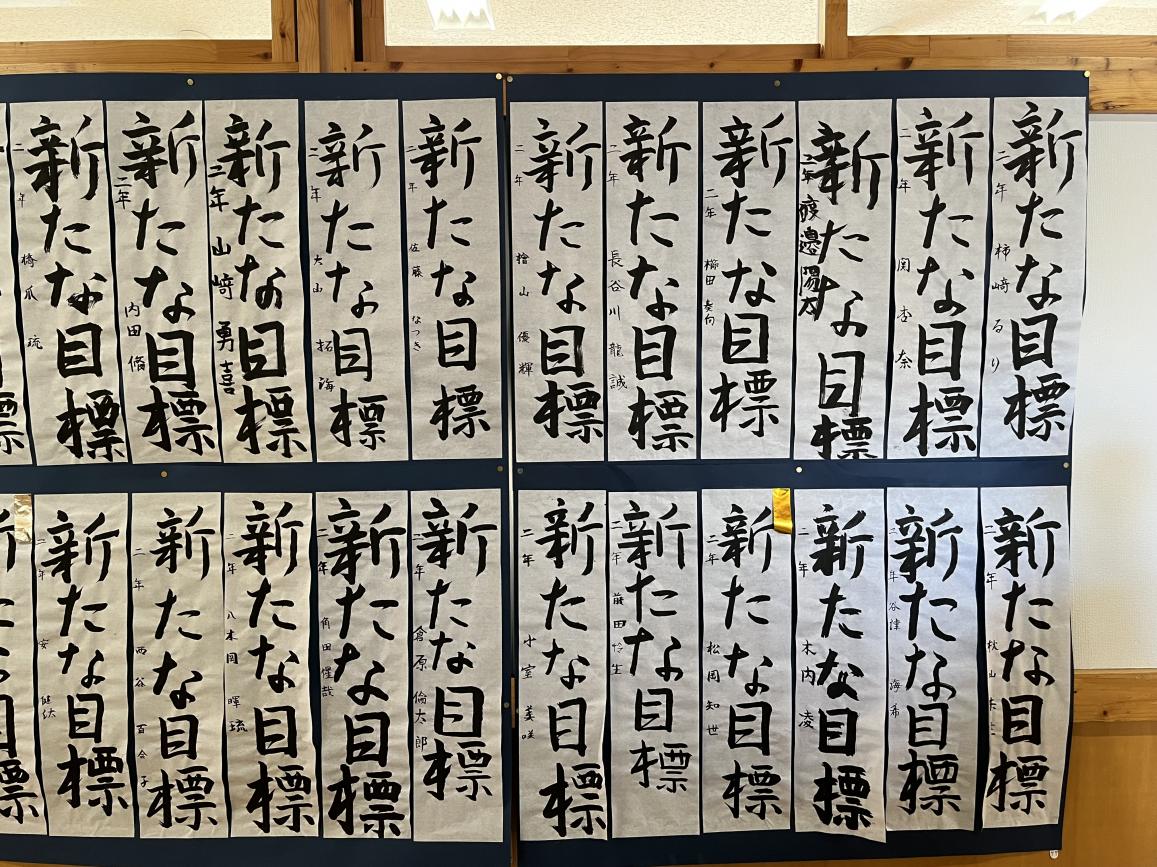 新たな目標
二年 柿﨑 るり
新たな目標
二年 関 杏奈
新たな目標
二年 渡邊 陽太
新たな目標
二年 櫛田 奏向
新たな目標
二年 長谷川 龍誠
新たな目標
二年 檜山 優輝
新たな目標
二年 佐藤 なつき
新たな目標
二年 大山 拓海
新たな目標
二年 山﨑 勇喜
新たな目標
二年 内田 脩
新たな目標
二年 橋爪 琉
新たな目標
二年 秋山
新たな目標
二年 谷津 海希
新たな目標
二年 木内 凌
新たな目標
二年 松岡 知世
新たな目標
二年 前田 怜生
新たな目標
二年 小室 美咲
新たな目標
二年 倉原 倫太郎
新たな目標
二年 角田 惺哉
新たな目標
二年 八木岡 暉琉
新たな目標
二年 西谷 百合子
新たな目標
二年 安 健汰